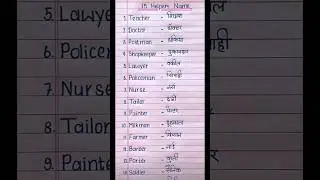 15 Helpers Name
1. Teacher - शिक्षक
2. Doctor - डॉक्टर
3. Postman - डाकिया
4. Shopkeeper - दुकानदार
5. Lawyer - वकील
6. Policeman - सिपाही
7. Nurse - नर्स
8. Tailor - दर्जी
9. Painter - पेंटर
10. Milkman -
11. Farmer - किसान
12. Barber - नाई
13. Porter - कुली
14. Soldier - सैनिक